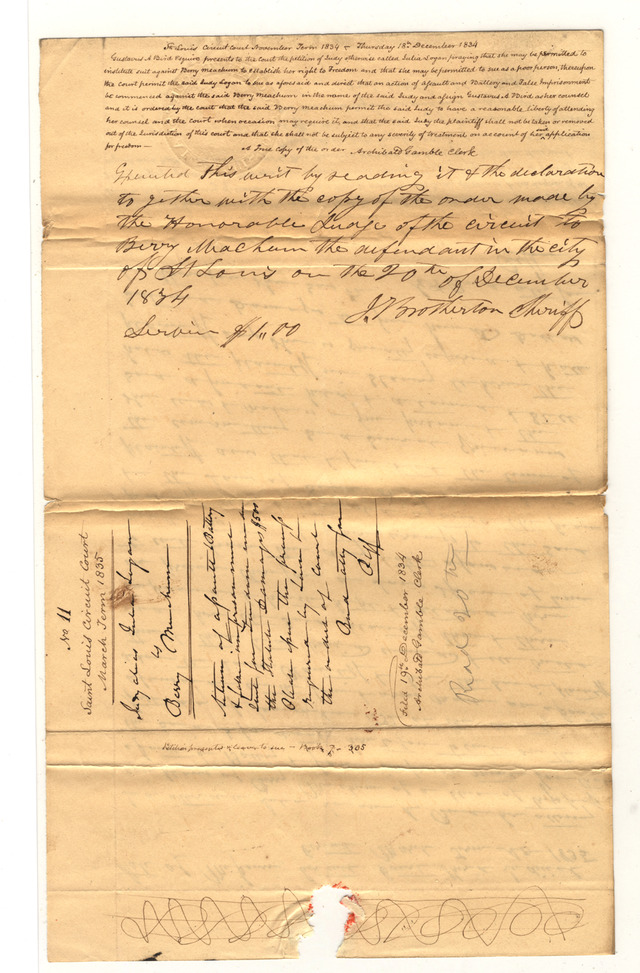 St Louis Circuit Court November Term 1834 - Thursday 18th December 1834
Gustavus A Bird Esquire presents to the court the petition of Judy otherwise called Julia Logan praying that she may be permitted to
institute suit against Berry Meachum to establish her right to Freedom and that she may be permitted to sue as a poor person, thereupon
the court permit the said Judy Logan to sue as aforesaid and direct that an action of Assault and Battery and False Imprisonment
be commenced against the said Berry Meachum in the name of the said Judy and assign Gustavus A Bird as her counsel
and it is ordered by the court that the said Berry Meachum permit the said Judy to have a reasonable liberty of attending
her counsel and the court when occasion may require it, and that the said Judy the plaintiff shall not be taken or removed
out of the Jurisdiction of this court and that she shall not be subject to any severity of treatment on account of her said application
for freedom —
A True Copy of the order Archibald Gamble Clerk
this writ by reading it & the declaration
to gether with the copy of the order made by
the Honorable Judge of the circuit to
Berry Machum the defendant in the city
of St Louis on the 20th of December
1834
J. Brotherton Sheriff
Service $1,,00
No 11
Saint Louis Circuit Court
March Term 1835
Logan
vs
Berry Meachum
Action of assault & Battery
& false imprisonment
for freedom under
the Statute Damages $500
Please issue the process
required by Law &
the order of court
Bird atty for
Plff
Filed 19th December 1834
Archibald Gamble Clerk
20th
Petition presented & leave to sue — Book 7 - 205